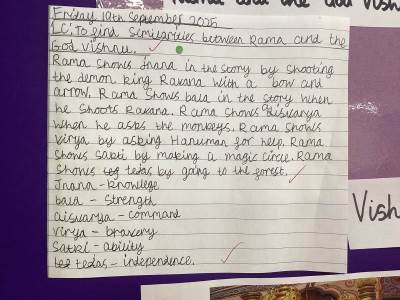 Friday 19th September 2025
LC: To find Similarities between Rama and the
God Vishnu.
Rama shows Jnana in the story by shooting
the demon king Ravana with a bow and
arrow. Rama Shows bala in the story when
he shoots Ravana. Rama shows aisvarya
when he asks the monkeys. Rama shows
virya by asking Hanuman for help. Rama
shows sakti by making a magic circle. Rama
shows tejas by going to the forest.
Jnana - knowlege
bala - strength
aisvarya - command
virya - bravery
Satki - ability
tejas - independence.
Vish